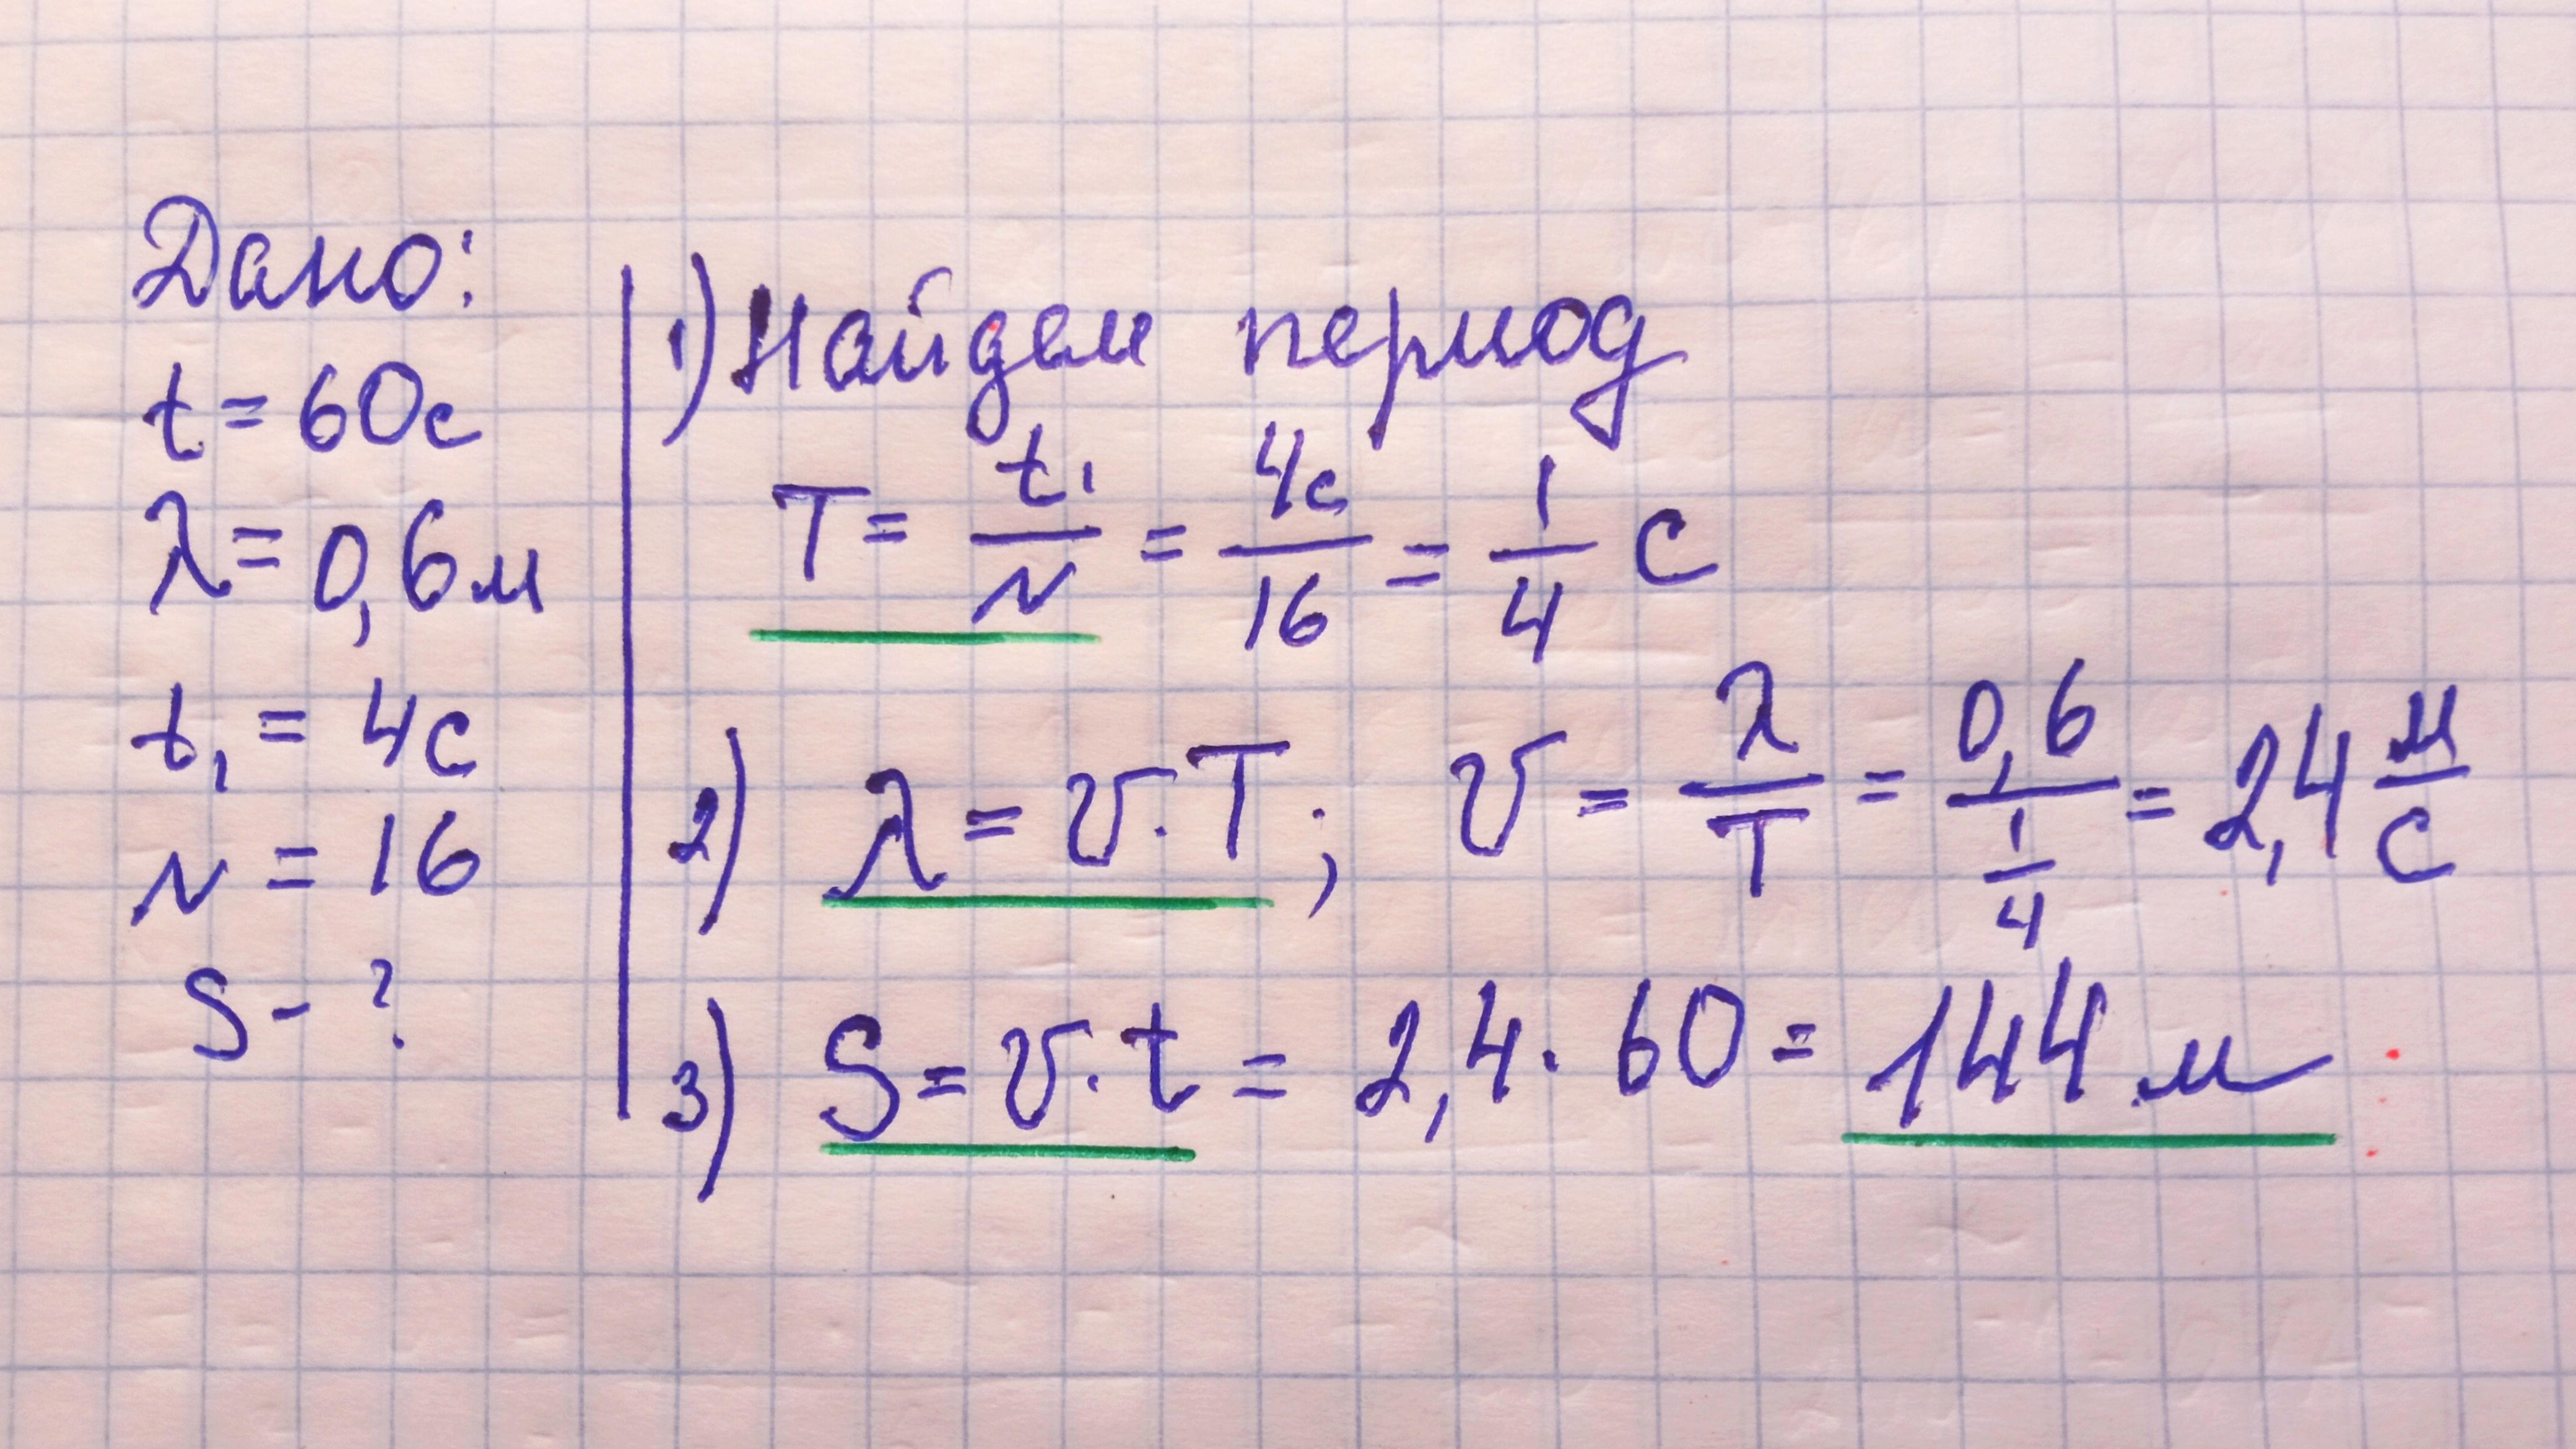 Дано:
t = 60с
λ = 0,6м
t₁ = 4с
N = 16
S - ?
1) Найдем период
T = t₁/N = 4с/16 = 1/4 с
2) λ = υ·T; υ = λ/T = 0,6/(1/4) = 2,4 м/с
3) S = υ·t = 2,4·60 = 144 м